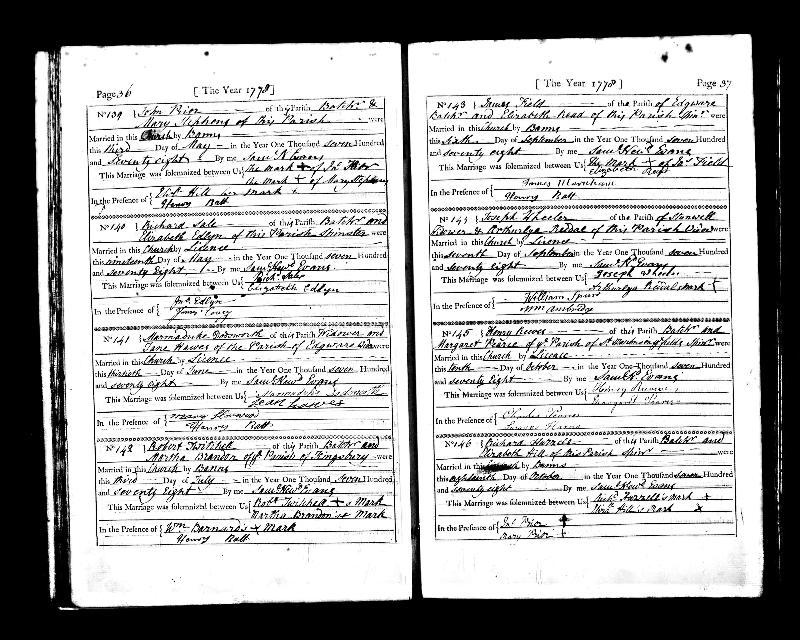 Page 36 [ The Year 1778 ]
No 139 { John Prior of this Parish Batchr &
Mary Stephens of this Parish were
Married in this Church by Banns
this third Day of May in the Year One Thousand seven Hundred
and Seventy eight By me Saml R Evans
This Marriage was solemnized between Us { the Mark + of Jno Prior
the Mark + of Mary Stephens
In the Presence of { Elizth Hill her mark
Henry Batt
No 140 { Richard Sale of this Parish Batchr and
Elizabeth Edlyn of this Parish Spinster were
Married in this Church by Licence
this nineteenth Day of May in the Year One Thousand seven Hundred
and Seventy Eight By me Saml Rewd Evans
This Marriage was solemnized between Us { Richd Sale
Elizabeth Edlyn
In the Presence of { Jno Edlyn
No 141 { Marmaduke of this Parish Widower and
Jane Hawes of the Parish of Edgware were
Married in this Church by Licence
this thirtieth Day of June in the Year One Thousand seven Hundred
and seventy eight By me Saml Rewd Evans
This Marriage was solemnized between Us { Marmaduke
In the Presence of {
Henry Batt
No 142 { Robert Twitchell of this Parish Batchr and
Martha Brandon of ye Parish of Kingsbury were
Married in this Church by Banns
this third Day of July in the Year One Thousand Seven Hundred
and Seventy Eight By me Saml Rewd Evans
This Marriage was solemnized between Us { Robt Twitchell + s Mark
Martha Brandon's + Mark
In the Presence of { Wm Barnard's + Mark
Henry Batt
[ The Year 1778 ] Page 37
No 143 { James Field of the Parish of Edgware
Batchr and Elizabeth of this Parish Spinr were
Married in this Church by Banns
this sixth Day of September in the Year One Thousand seven Hundred
and seventy eight By me Saml Rewd Evans
This Marriage was solemnized between Us { The Mark + of Jas Field
Elizabeth
In the Presence of { James Marcham
Henry Batt
Joseph Wheeler of the Parish of Stanwell
of this Parish were
Married in this Church by Licence
this seventh Day of September in the Year One Thousand seven Hundred
and Seventy Eight By me Saml R Evans
This Marriage was solemnized between Us { Joseph
mark
In the Presence of { William
Wm
No 145 { Henry of this Parish Batchr and
Margaret Pearce of ye Parish of St Martins Spinr were
Married in this Church by Licence
this tenth Day of October in the Year One Thousand seven Hundred
and seventy Eight By me Saml R Evans
This Marriage was solemnized between Us { Henry
Margaret Pearce
In the Presence of { Charles
No 146 { Richard of this Parish Batchr and
Elizabeth Hill of this Parish Spinr were
Married in this by Banns
this eighteenth Day of October in the Year One Thousand seven Hundred
and Seventy eight By me Saml Rewd Evans
This Marriage was solemnized between Us { Richd Mark +
Elizth Hill's Mark x
In the Presence of { Jno Prior +
Mary Prior +